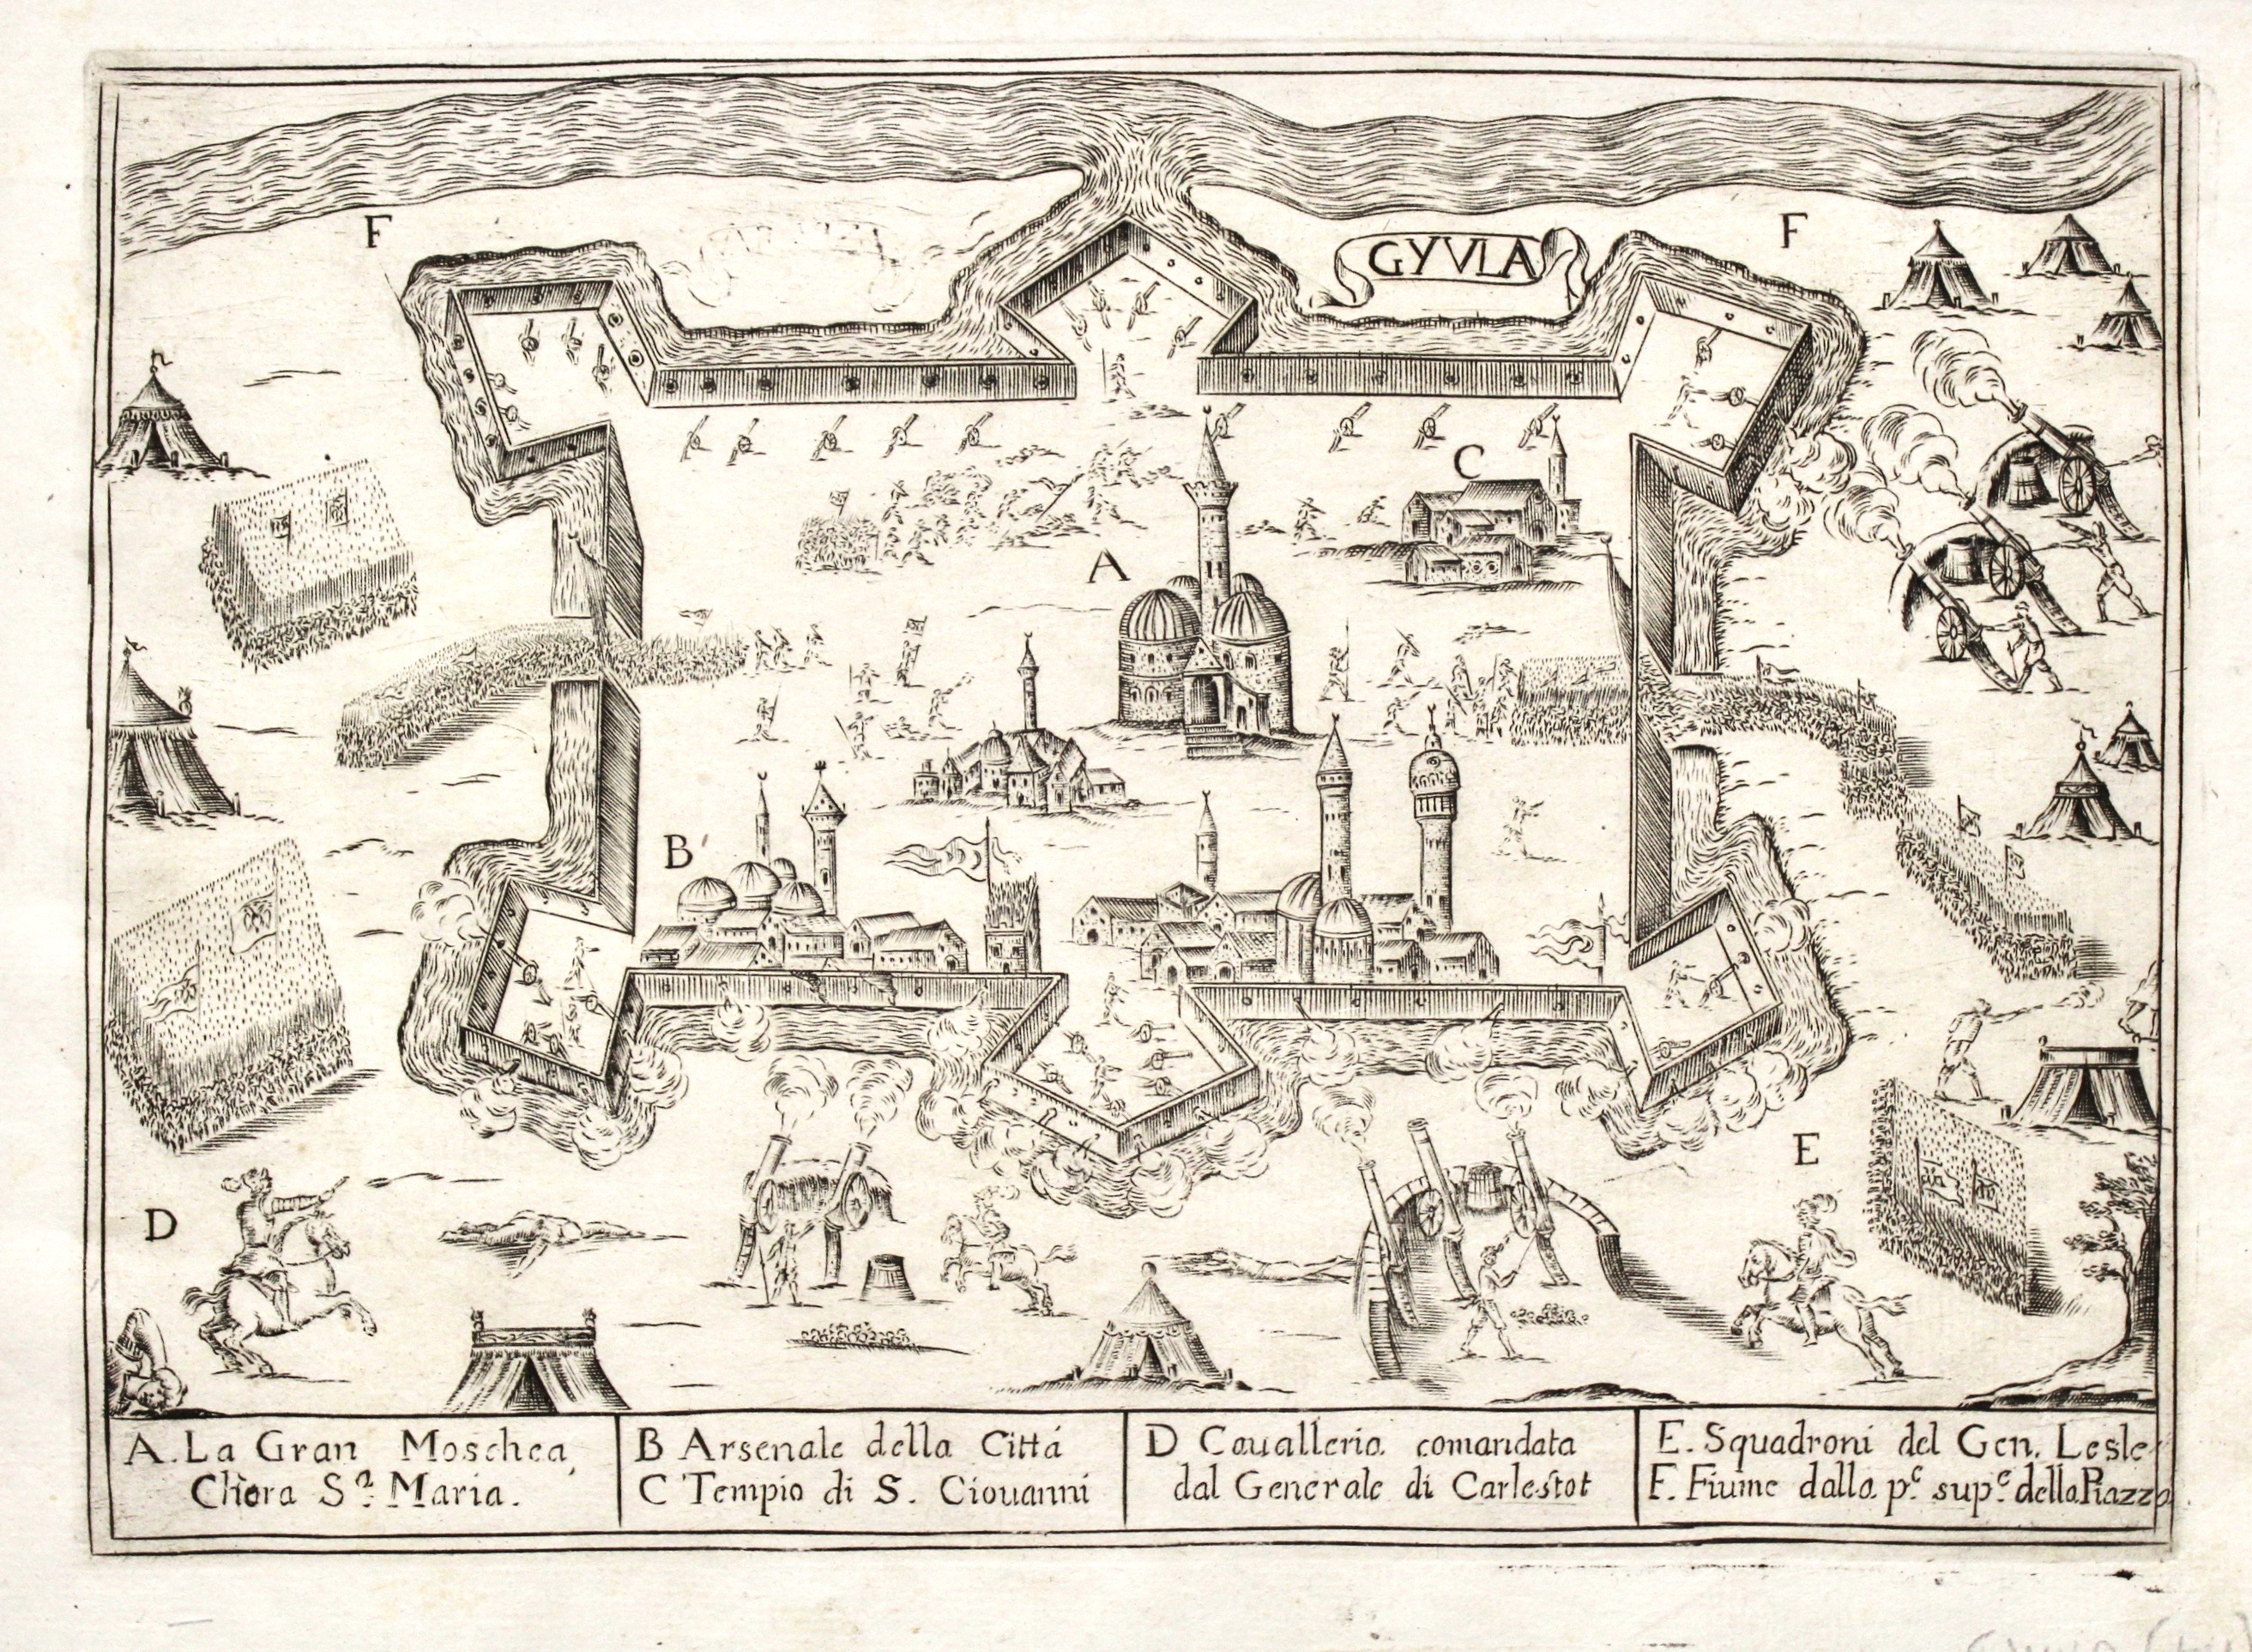 F
F
GYVLA
C
A
B
E
D
A. La Gran Moschea,
Chiera Sᵃ. Maria.
B Arsenale della Cittá
C Tempio di S. Giouanni
D Caualleria comandata
dal Generale di Carlestot
E. Squadroni del Gen. Lesle
F. Fiume dalla pᵉ. supᵉ. della Piazza